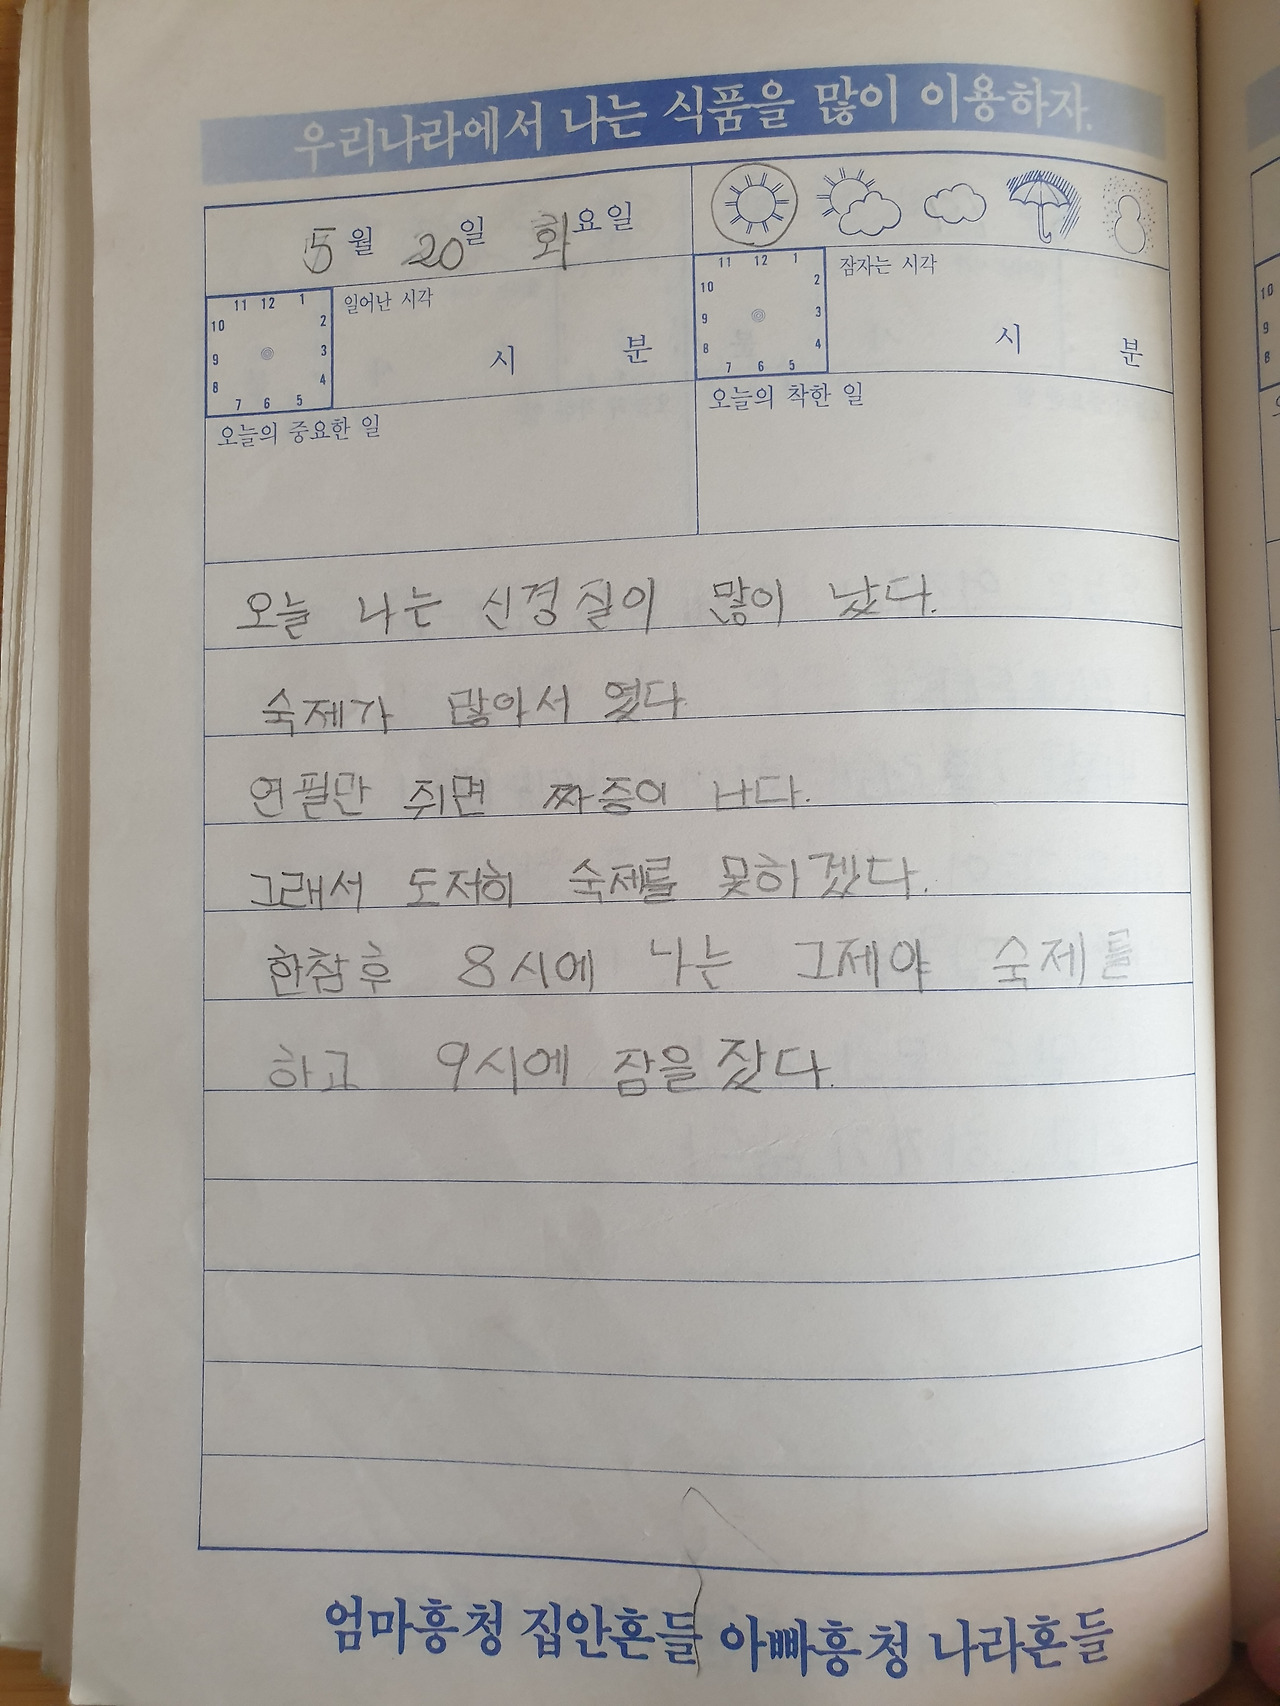 우리나라에서 나는 식품을 많이 이용하자.
5월 20일 화요일
11 12 1
10 2
9 3
8 4
7 6 5
일어난 시각
시 분
11 12 1
10 2
9 3
8 4
7 6 5
잠자는 시각
시 분
오늘의 중요한 일
오늘의 착한 일
오늘 나는 신경질이 많이 났다.
숙제가 많아서 였다
연필만 쥐면 짜증이 난다.
그래서 도저히 숙제를 못하겠다.
한참후 8시에 나는 그제야 숙제를
하고 9시에 잠을 잤다.
엄마흥청 집안흔들 아빠흥청 나라흔들
10
9
8